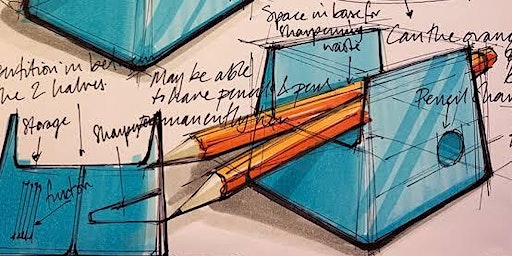 Space in base for
sharpening
waste
Can the orang
Partition in between
the 2 halves.
May be able
to have pencils & pens
permanently here
Storage
Sharpener
function
Pencil shar